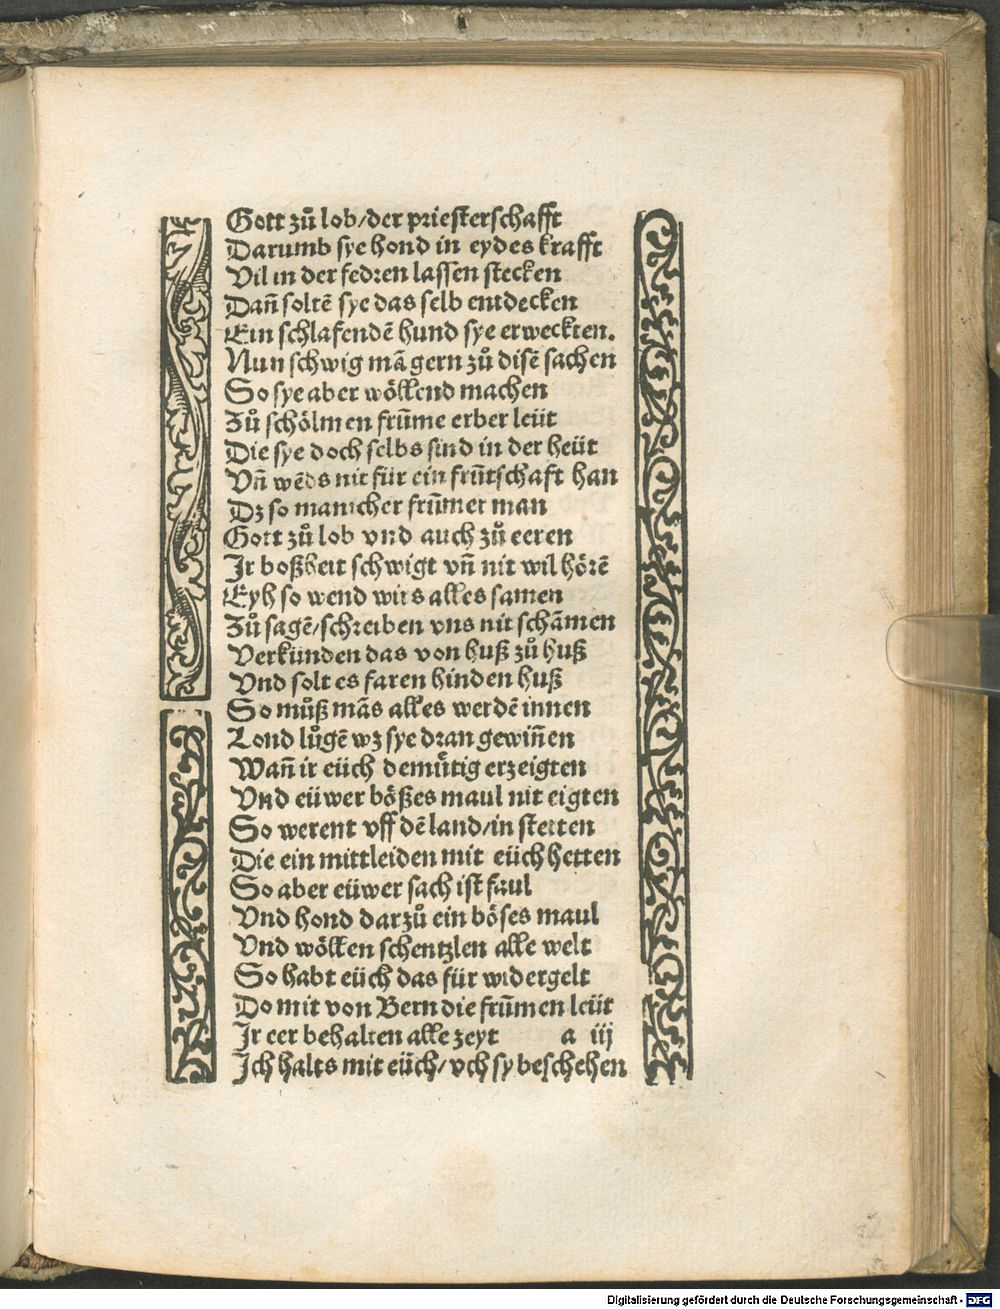 Gott zů lob/der priesterschafft
Darumb sye hond in eydes krafft
Vil in der fedren lassen stecken
Dañ soltẽ sye das selb entdecken
Ein schlafendẽ hund sye erweckten.
Nun schwig mã gern zů disẽ sachen
So sye aber wöllend machen
Zů schölmen frũme erber leüt
Die sye doch selbs sind in der heüt
Vñ wẽds nit für ein frũtschaft han
Dz so manicher frũmer man
Gott zů lob vnd auch zů eeren
Jr boßheit schwigt vñ nit wil hörẽ
Eyh so wend wirs alles samen
Zů sagẽ/schreiben vns nit schãmen
Verkünden das von huß zů huß
Vnd solt es faren hinden huß
So můß mãs alles werdẽ innen
Lond lůgẽ wz sye dran gewiñen
Wañ ir eüch demütig erzeigten
Vnd eüwer bößes maul nit eigten
So werent vff dẽ land/in stetten
Die ein mittleiden mit eüch hetten
So aber eüwer sach ist faul
Vnd hond darzů ein böses maul
Vnd wöllen schentzlen alle welt
So habt eüch das für widergelt
Do mit von Bern die frũmen leüt
Jr eer behalten alle zeyt a iij
Jch halts mit eüch/vch sy beschehen
Digitalisierung gefördert durch die Deutsche Forschungsgemeinschaft - DFG